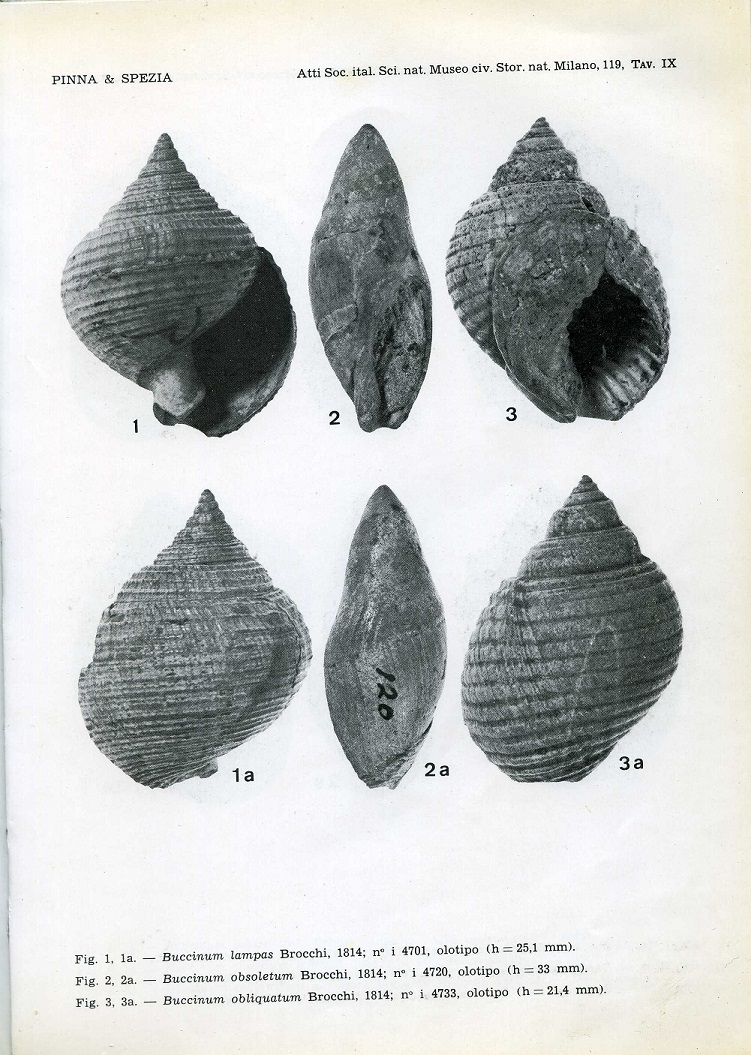 PINNA & SPEZIA
Atti Soc. ital. Sci. nat. Museo civ. Stor. nat. Milano, 119, TAV. IX
1
2
3
1a
120
2a
3a
Fig. 1, 1a. — Buccinum lampas Brocchi, 1814; n° i 4701, olotipo (h = 25,1 mm).
Fig. 2, 2a. — Buccinum obsoletum Brocchi, 1814; n° i 4720, olotipo (h = 33 mm).
Fig. 3, 3a. — Buccinum obliquatum Brocchi, 1814; n° i 4733, olotipo (h = 21,4 mm).